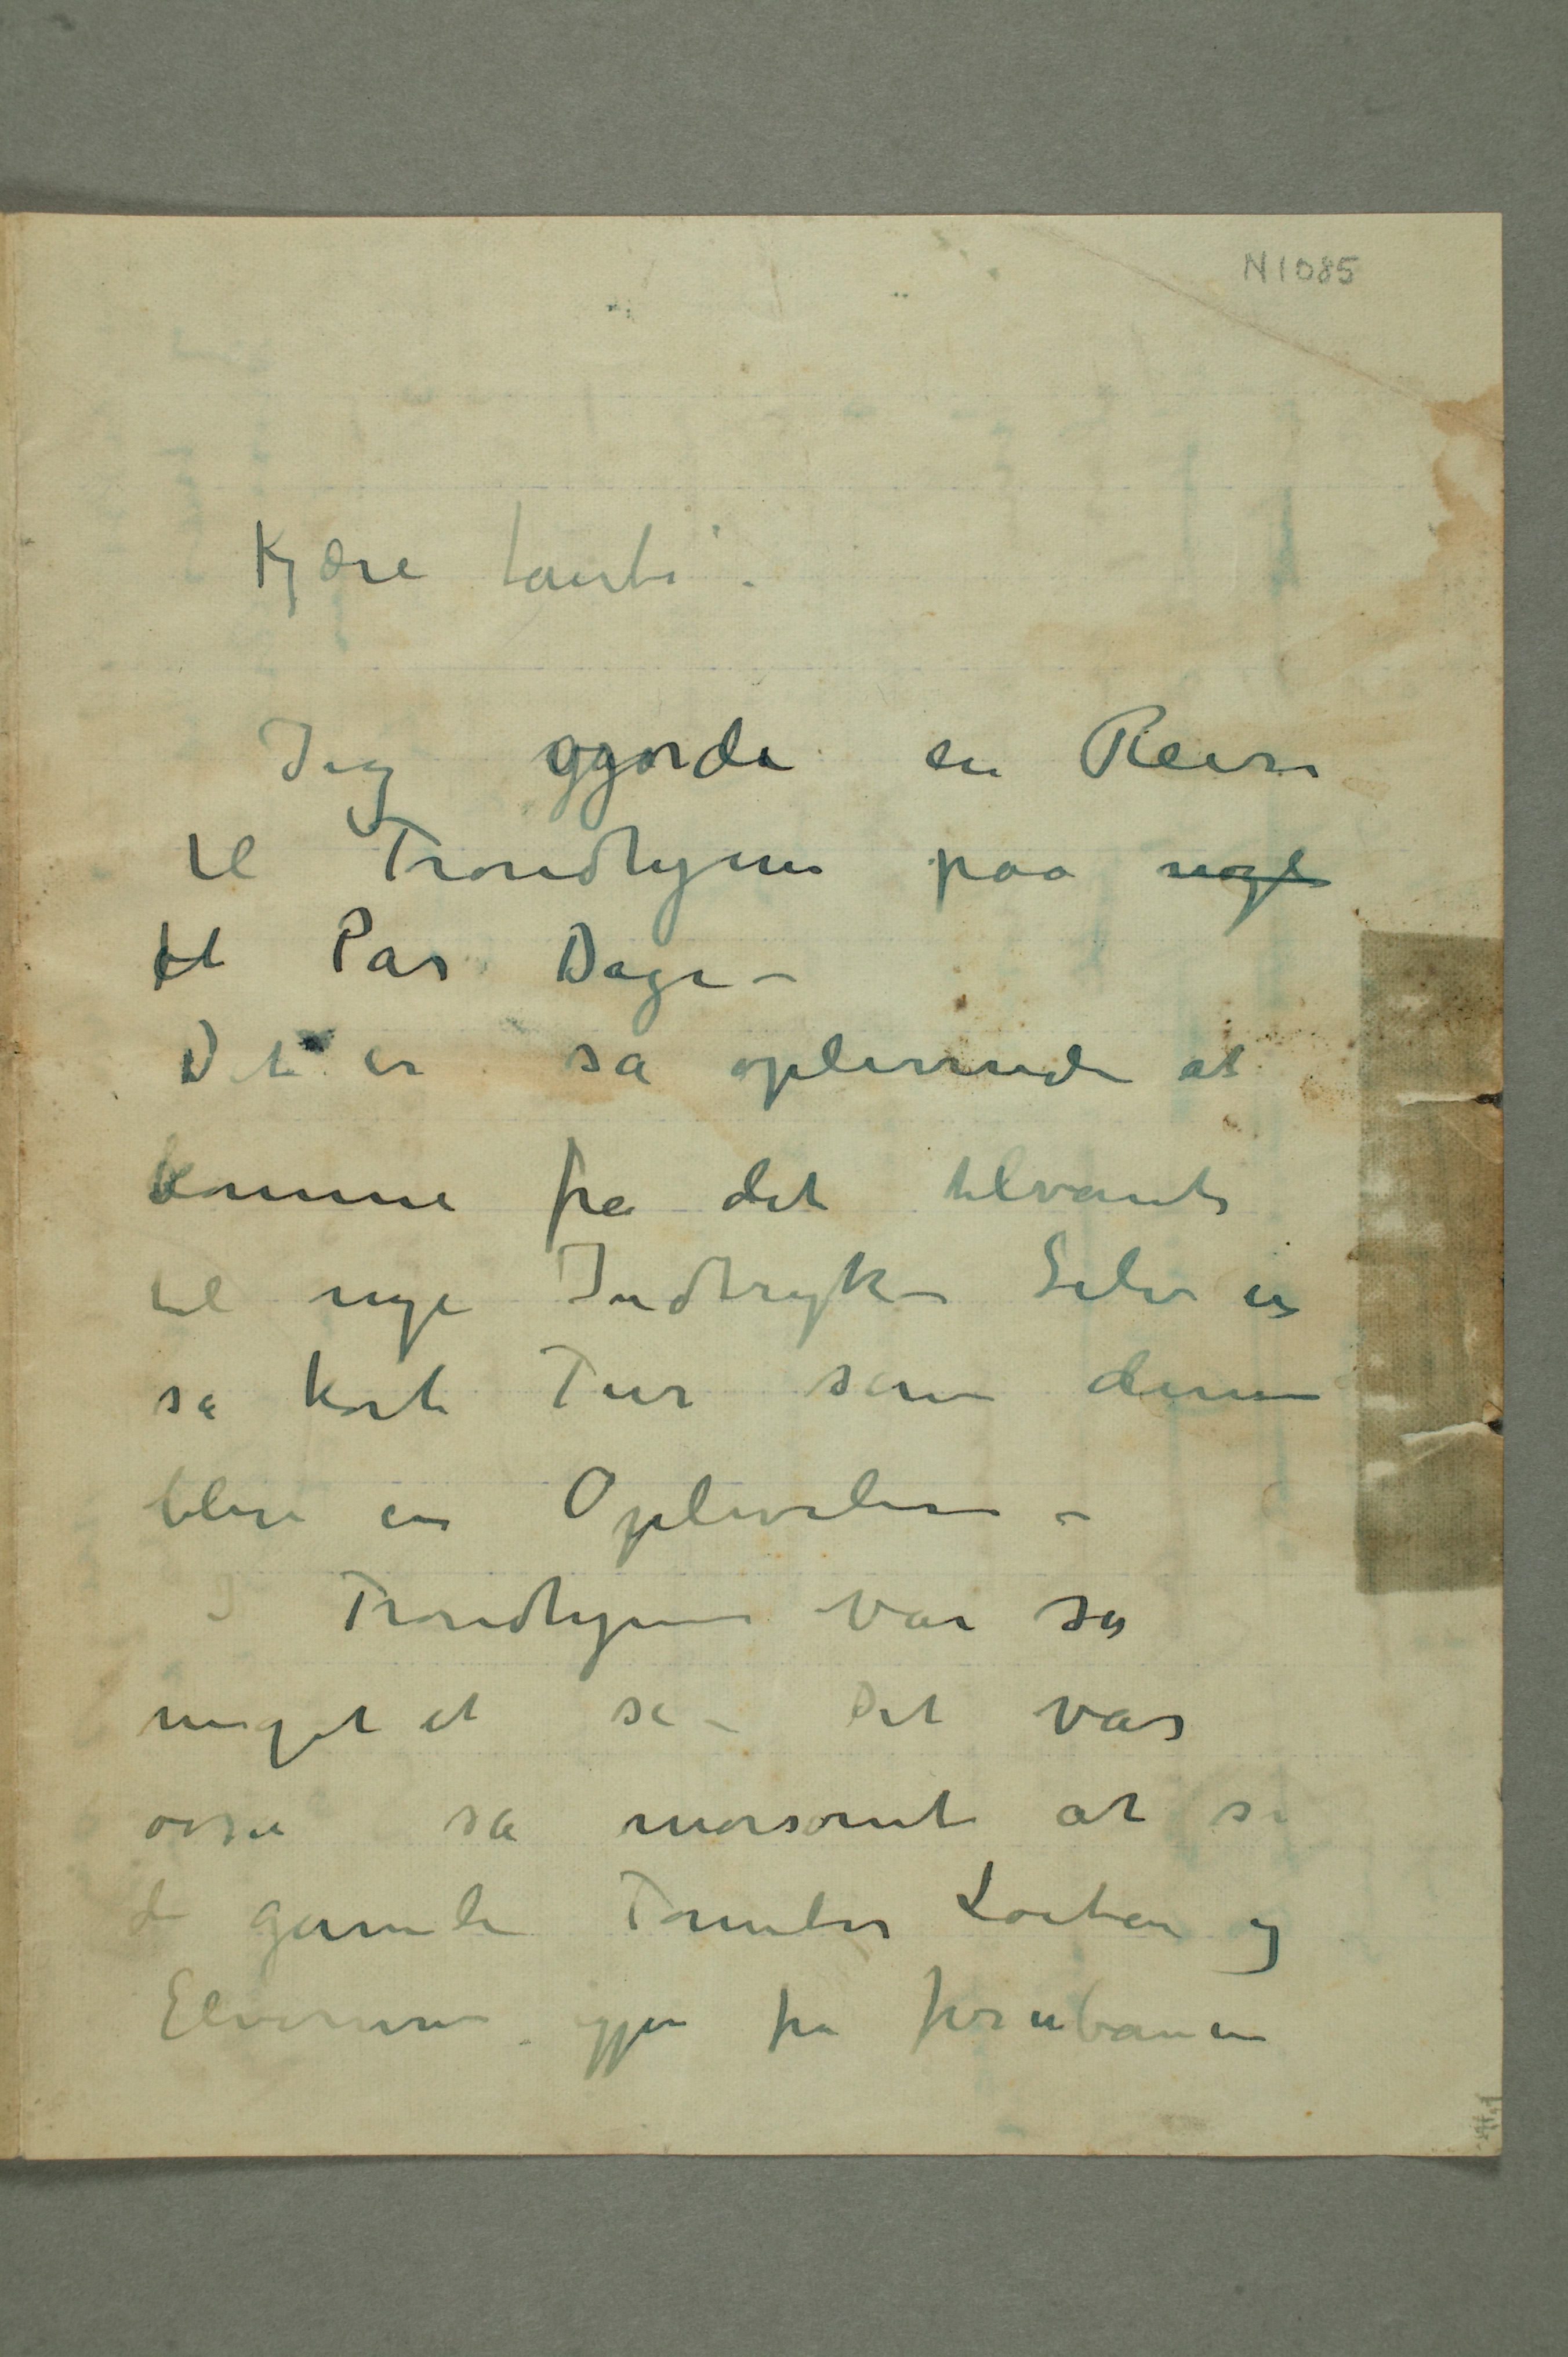 N 1085
Kjære tante.
Jeg gjorde en Reise
til Trondhjem paa nogle
et Par Dage –
Det er så oplivende at
komme fra det tilvante
til nye Indtryk – Selv en
så kort Tur som denne
blir en Oplevelse –
I Trondhjem var så
meget at se – Det var
også så morsomt at se
de gamle Tomter Løiten og
Elverum igjen fra jernbanen